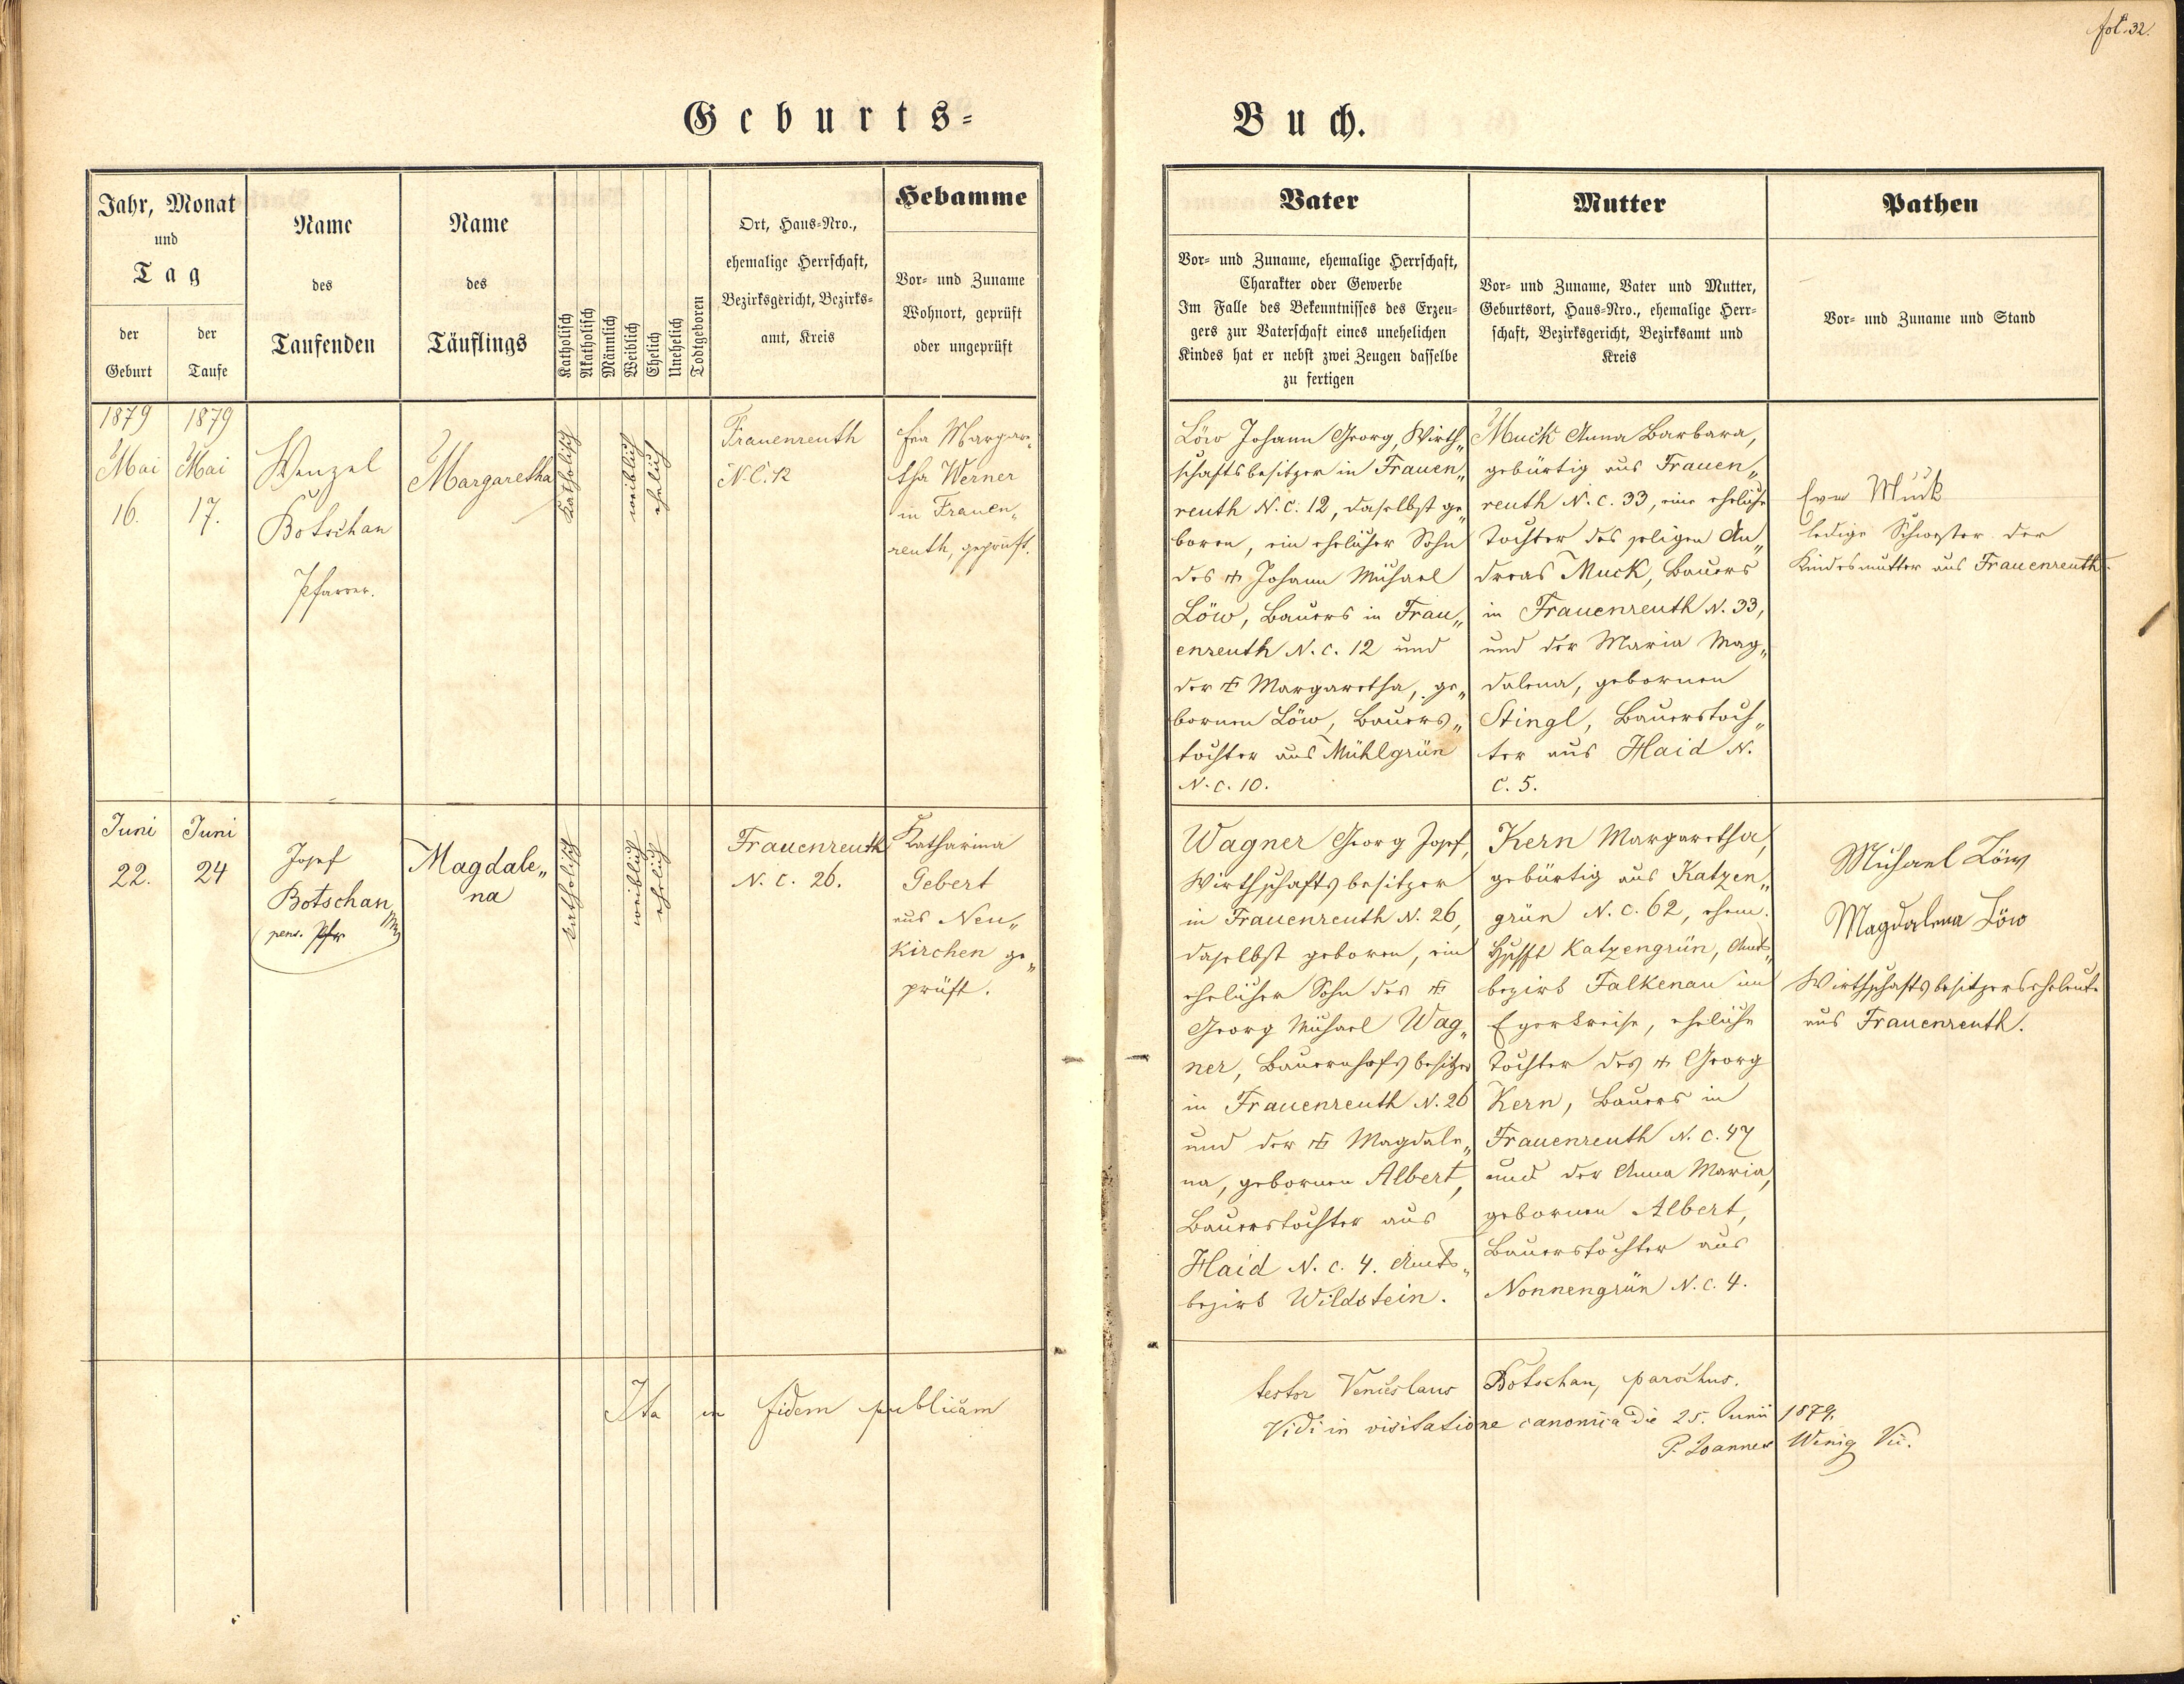 fol. 32.
Geburts-
Buch.
Jahr, Monat
und
Tag
der
Geburt
der
Taufe
Name
des
Taufenden
Name
des
Täuflings
Katholisch
Akatholisch
Männlich
Weiblich
Ehelich
Unehelich
Todtgeboren
Ort, Haus-Nro.,
ehemalige Herrschaft,
Bezirksgericht, Bezirks-
amt, Kreis
Hebamme
Vor- und Zuname
Wohnort, geprüft
oder ungeprüft
Vater
Vor- und Zuname, ehemalige Herrschaft,
Charakter oder Gewerbe
Im Falle des Bekenntnisses des Erzeu-
gers zur Vaterschaft eines unehelichen
Kindes hat er nebst zwei Zeugen dasselbe
zu fertigen
Mutter
Vor- und Zuname, Vater und Mutter,
Geburtsort, Haus-Nro., ehemalige Herr-
schaft, Bezirksgericht, Bezirksamt und
Kreis
Pathen
Vor- und Zuname und Stand
1879
Mai
16.
1879
Mai
17.
Wenzel
Botschan
Pfarrer.
Margaretha
katholisch
weiblich
ehelich
Frauenreuth
N. C. 12
Margare„
tha Werner
in Frauen„
reuth, geprüft.
Löw Johann Georg, Wirth„
schaftsbesitzer in Frauen„
reuth N. c. 12, daselbst ge„
boren, ein ehelicher Sohn
des † Johann Michael
Löw, Bauers in Frau„
enreuth N. c. 12 und
der † Margaretha, ge„
bornen Löw, Bauers„
tochter aus Mühlgrün
N. c. 10.
Muck Anna Barbara,
gebürtig aus Frauen„
reuth N. c. 33, eine eheliche
Tochter des seligen An„
dreas Muck, Bauers
in Frauenreuth N. 33,
und der Maria Mag„
dalena, gebornen
Stingl, Bauerstoch„
ter aus Haid N.
C. 5.
Eva Muck
ledige Schwester der
Kindesmutter aus Frauenreuth.
Juni
22.
Juni
24
Josef
Botschan
pens. Pfr.
Magdale„
na
katholisch
weiblich
ehelich
Frauenreuth
N. C. 26.
Katharina
Gebert
aus Neu„
kirchen ge„
prüft.
Wagner Georg Josef,
Wirthschaftsbesitzer
in Frauenreuth N. 26,
daselbst geboren, ein
ehelicher Sohn des †
Georg Michael Wag„
ner, Bauernhofsbesitzer
in Frauenreuth N. 26
und der † Magdale„
na, gebornen Albert,
Bauerstochter aus
Haid N. c. 4. Amts„
bezirk Wildstein.
Kern Margaretha,
gebürtig aus Katzen„
grün N. C. 62, ehem.
Hschft Katzengrün, Amts„
bezirk Falkenau im
Egerkreise, eheliche
Tochter des † Georg
Kern, Bauers in
Frauenreuth N. C. 47
und der Anna Maria,
gebornen Albert,
Bauerstochter aus
Nonnengrün N. C. 4.
Michael Löw
Magdalena Löw
Wirthschaftsbesitzerseheleute
aus Frauenreuth.
Ita in fidem publicam
testor Venceslaus Botschan, parochus.
Vidi in visitatione canonica die 25. Junii 1879.
P. Joannes Wenig Vic.